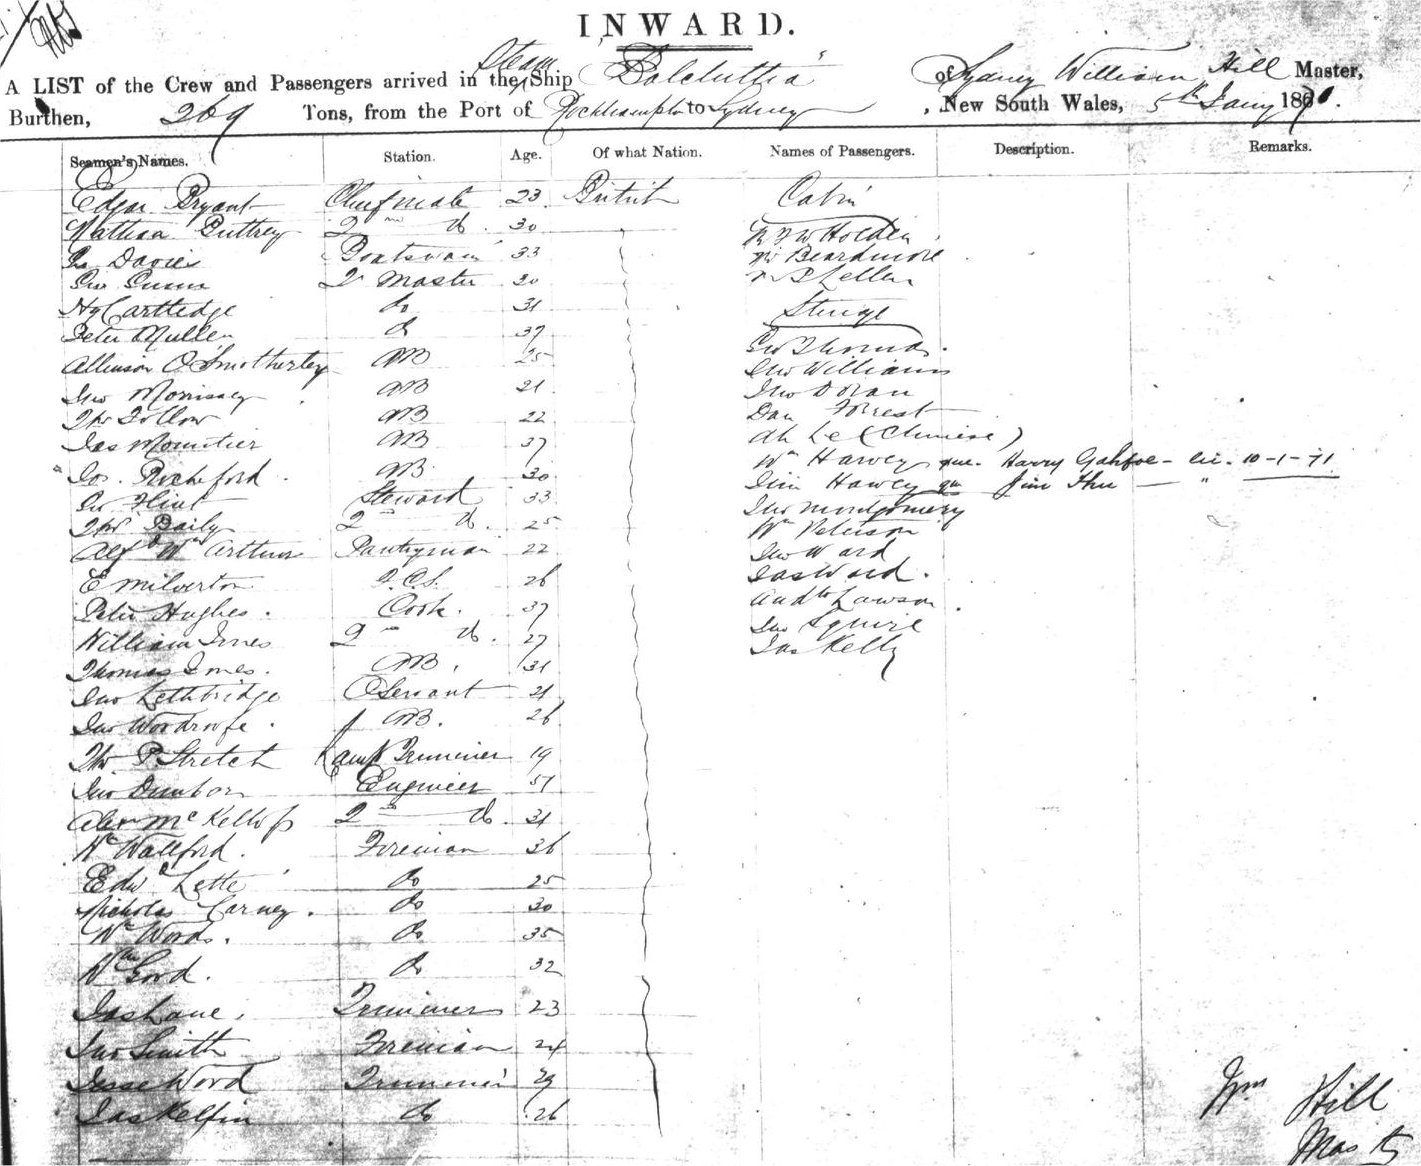 INWARD.
A LIST of the Crew and Passengers arrived in the Steam Ship "Balclutha" of Sydney William Hill Master,
Burthen, 269 Tons, from the Port of Rockhampton to Sydney, New South Wales, 5th Jany 1871.
Seamen's Names. Station. Age. Of what Nation. Names of Passengers. Description. Remarks.
Edgar Bryant Chief mate 23 British Cabin
Nathan Buttrey 2nd do. 30
Holden
Davies Boatswain 33 Mr Beardmore
Geo Q Master 30
Hy Carttedge do 31 Steerage
Peter Mullen do 37
Allinson O Smotherley AB 25 Geo Thomas
Jno Morrissey AB 21 Jno Williams
Jno Doran
Thos Follow AB 22 Dan Forrest
Jas Mountier AB 37 Ah Le (Chinese)
Jos. Rocheford AB 30 Wm Harvey que. Harry Gahfoe - lic. 10-1-71
Flint Steward 33 Jim Hawey qu Jim Thu — " —
Thos Baily 2nd do. 25 Jno Montgomery
Alfd Wm Arthur Pantryman 22 Wm Peterson
Jno Ward
E Milverton F.C.S. 26 Jas Ward.
Peter Hughes. Cook. 37 Lawson.
William Innes 2nd do. 27 Jno Squire
Thomas Jones. AB. 31 Jas Kelly
Jno Lethbridge O Servant 21
Jno Woodroofe. AB. 26
Thos P Stretch Lamp Trimmer 19
Jno Dunbar Engineer 51
Alexr McKellop 2nd do. 31
Wm Wallford. Fireman 36
Edwd Lette do 25
Nicholas Carney. do 30
Wm Words. do 35
Wm Gord. do 32
Jas Lane. Trimmer 23
Jno Smith Fireman 24
Jesse Word Trimmer 29
Jas Kelfin do 26
Wm Hill
Master